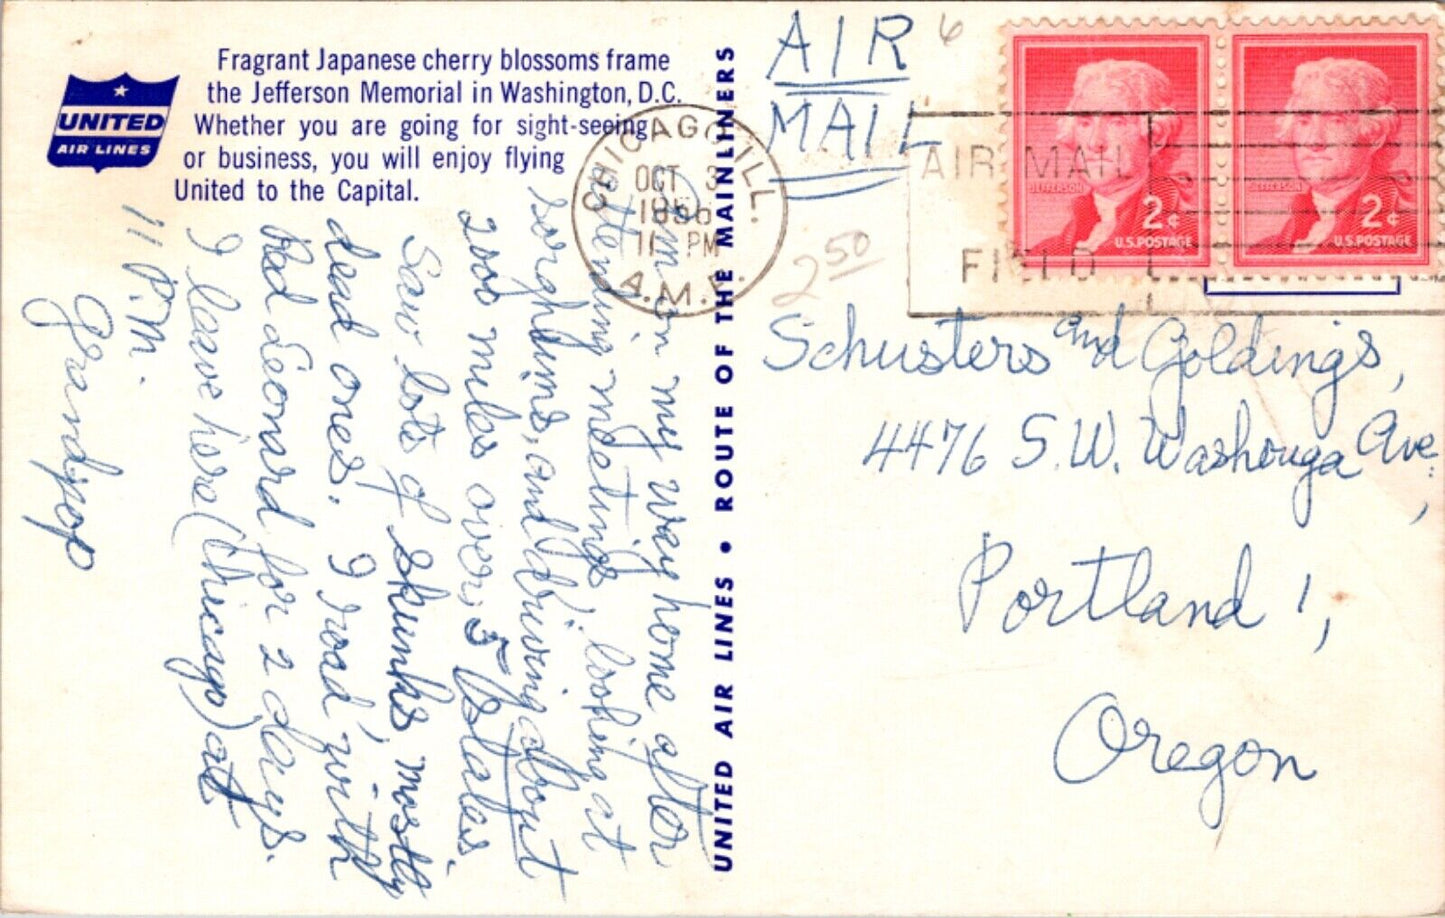 Fragrant Japanese cherry blossoms frame
the Jefferson Memorial in Washington, D.C.
Whether you are going for sight-seeing
or business, you will enjoy flying
United to the Capital.
UNITED
AIR LINES
UNITED AIR LINES • ROUTE OF THE MAINLINERS
CHICAGO, ILL.
OCT 3
1956
11 PM
A.M.F.
AIR MAIL
FIELD
JEFFERSON
2¢
U.S. POSTAGE
JEFFERSON
2¢
U.S. POSTAGE
AIR
MAIL
6
2 50
Schusters and Goldings,
4476 S.W. Washouga Ave.,
Portland 1,
Oregon
Am on my way home after
attening meetings, looking at
sorghums, and driving about
2000 miles over 5 States.
Saw lots of skunks, mostly
dead ones. I road with
Red Leonard for 2 days.
I leave here (Chicago) at
11 P.M.
Grandpop